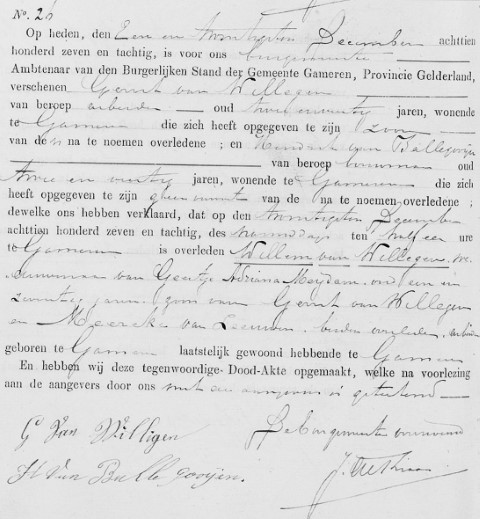 No. 26
Op heden, den Een en twintigsten December achttien
honderd zeven en tachtig, is voor ons burgemeester
Ambtenaar van den Burgerlijken Stand der Gemeente Gameren, Provincie Gelderland,
verschenen Gerrit van Willegen
van beroep arbeider oud twee en veertig jaren, wonende
te Gameren die zich heeft opgegeven te zijn zoon
van de n na te noemen overledene ; en Hendrik van Ballegooijen
van beroep bouwman oud
twee en veertig jaren, wonende te Gameren die zich
heeft opgegeven te zijn geen verwant van de na te noemen overledene ;
dewelke ons hebben verklaard, dat op den twintigsten December
achttien honderd zeven en tachtig, des namiddags ten half een ure
te Gameren is overleden Willem van Willegen, we
duwenaar van Geertje Adriana Meydam, oud een en
zeventig jaren, zoon van Gerrit van Willegen
en Meerske van Leeuwen, beiden overleden, arbeider
geboren te Gameren laatstelijk gewoond hebbende te Gameren
En hebben wij deze tegenwoordige Dood-Akte opgemaakt, welke na voorlezing
aan de aangevers door ons met de aangevers is geteekend
G Van Willigen
De burgemeester voornoemd
H Van Balle gooijen.